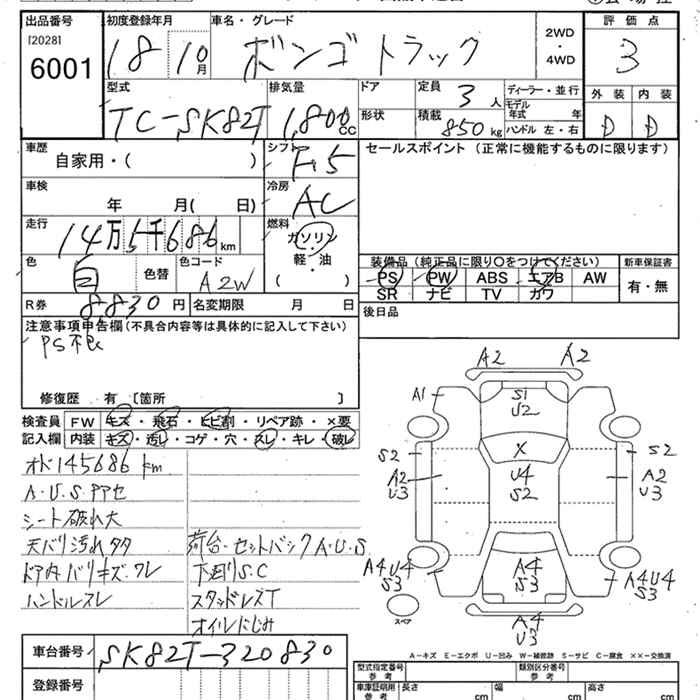 出品番号 初度登録年月 車名・グレード 評価点
[2028]
6001
18 10月 ボンゴ トラック
2WD
・
4WD
3
型式 排気量 ドア 定員 3人 ディーラー・並行 外装 内装
TC-SK82T 1,800cc 形状 積載 850kg モデル年式 年 D D
ハンドル 左・右
車歴 シフト セールスポイント (正常に機能するものに限ります)
自家用・( ) F5
車検 冷房
年 月( 日) AC
走行 燃料
14万5千686km ガソリン
軽・油
( )
色 白 色替 色コード A2W
装備品 (純正品に限り○をつけてください) 新車保証書
PS PW ABS エアB AW 有・無
SR ナビ TV カワ
R券 8,830円 名変期限 月 日
後日品
注意事項申告欄(不具合内容等は具体的に記入して下さい)
PS不良
修復歴 有 〔箇所 〕
検査員 FW キズ・飛石・ヒビ割・リペア跡・×要
記入欄 内装 キズ・汚レ・コゲ・穴・スレ・キレ・破レ
オド145686km
A・U・S
シート破れ大
天バリ汚れ
ドア内バリキズ・ワレ
ハンドルスレ
荷台・セットバックA・U・S
下回りS・C
スタッドレスT
オイルにじみ
A2 A2
A1 S1
U2
S2 X S2
A2
U3
U4
S2
A2
U3
A4U4
S3
A4
S3
A4U4
S3
スペア
A4
U3
A-キズ E-エクボ U-凹み W-補修跡 S-サビ C-腐食 XX-交換済
車台番号 SK82T-320830
登録番号
型式指定番号 参考 類別区分番号 参考
車庫証明用 参考 長さ cm 幅 cm 高さ cm